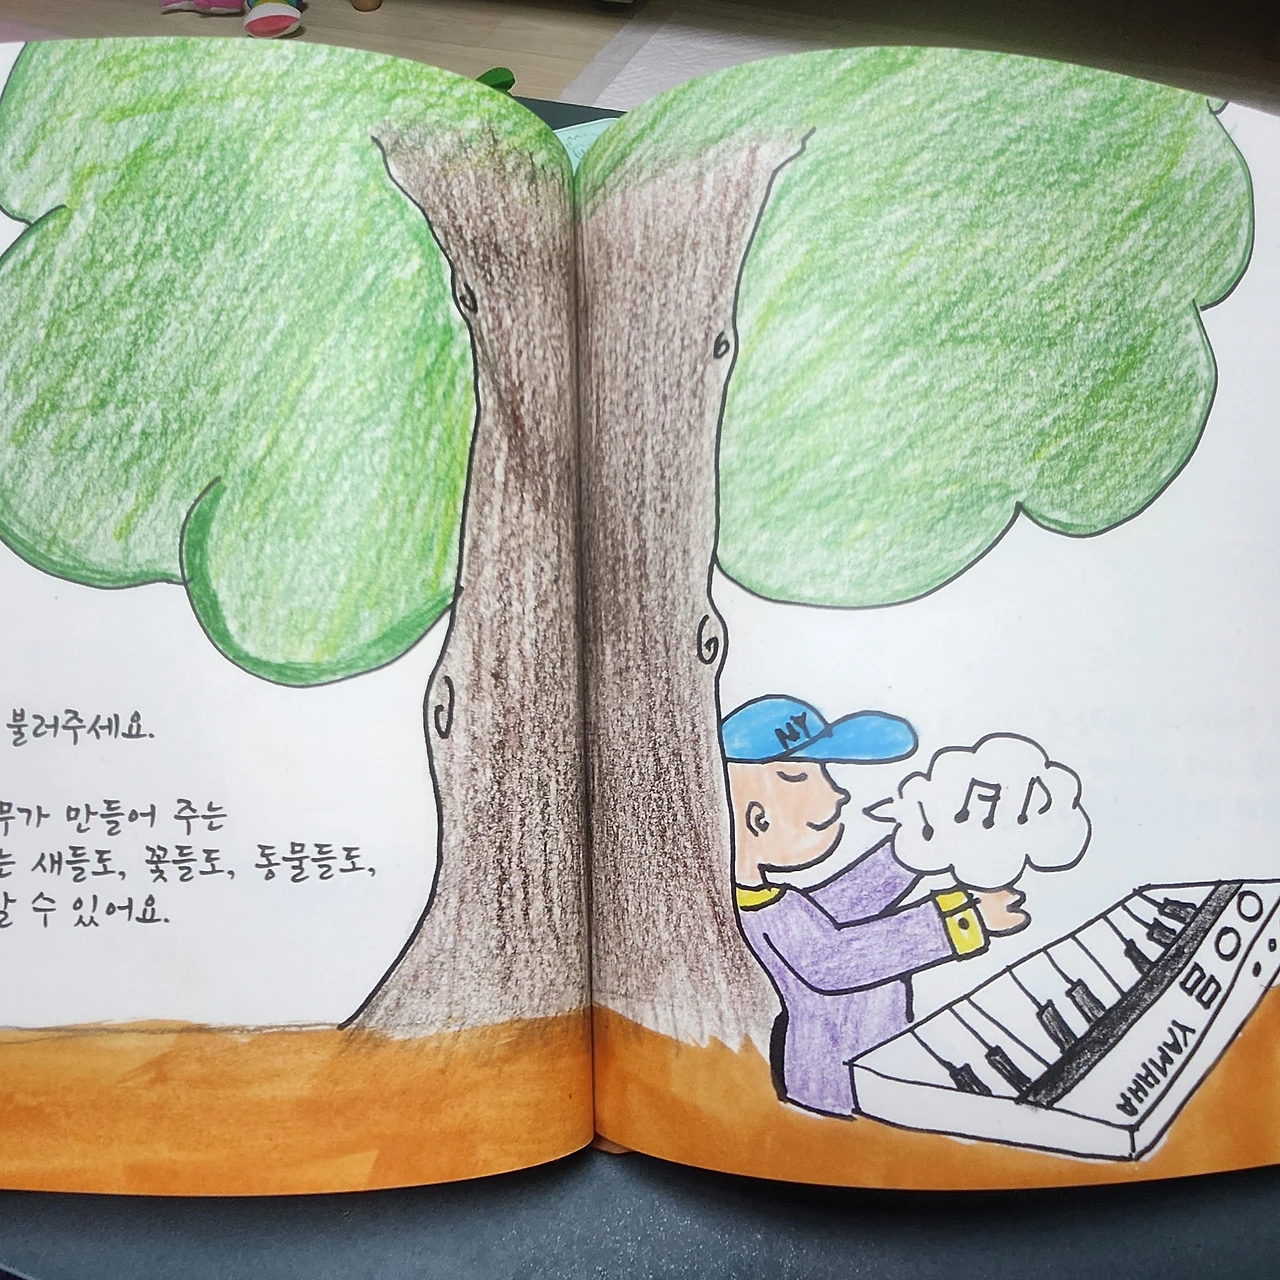 불러주세요.
무가 만들어 주는
는 새들도, 꽃들도, 동물들도,
할 수 있어요.
NY
YAMAHA